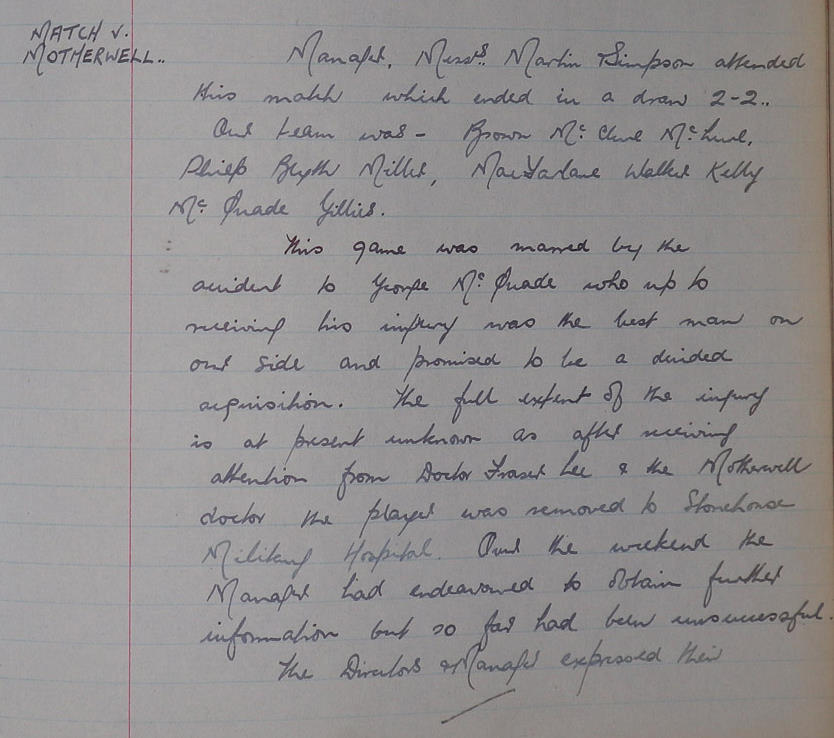 MATCH V.
MOTHERWELL..
Manager, Messrs. Martin Simpson attended
this match which ended in a draw 2-2..
Our team was - Brown Mc. Clure Mc. Lure,
Philip Blyth Miller, MacFarlane Walker Kelly
Mc. Quade Gillies.
This game was marred by the
accident to George Mc. Quade who up to
receiving his injury was the best man on
our side and promised to be a decided
acquisition. The full extent of the injury
is at present unknown as after receiving
attention from Doctor Fraser Lee & the Motherwell
doctor the player was removed to Stonehouse
Military Hospital. Over the weekend the
Manager had endeavoured to obtain further
information but so far had been unsuccessful.
The Directors & Manager expressed their